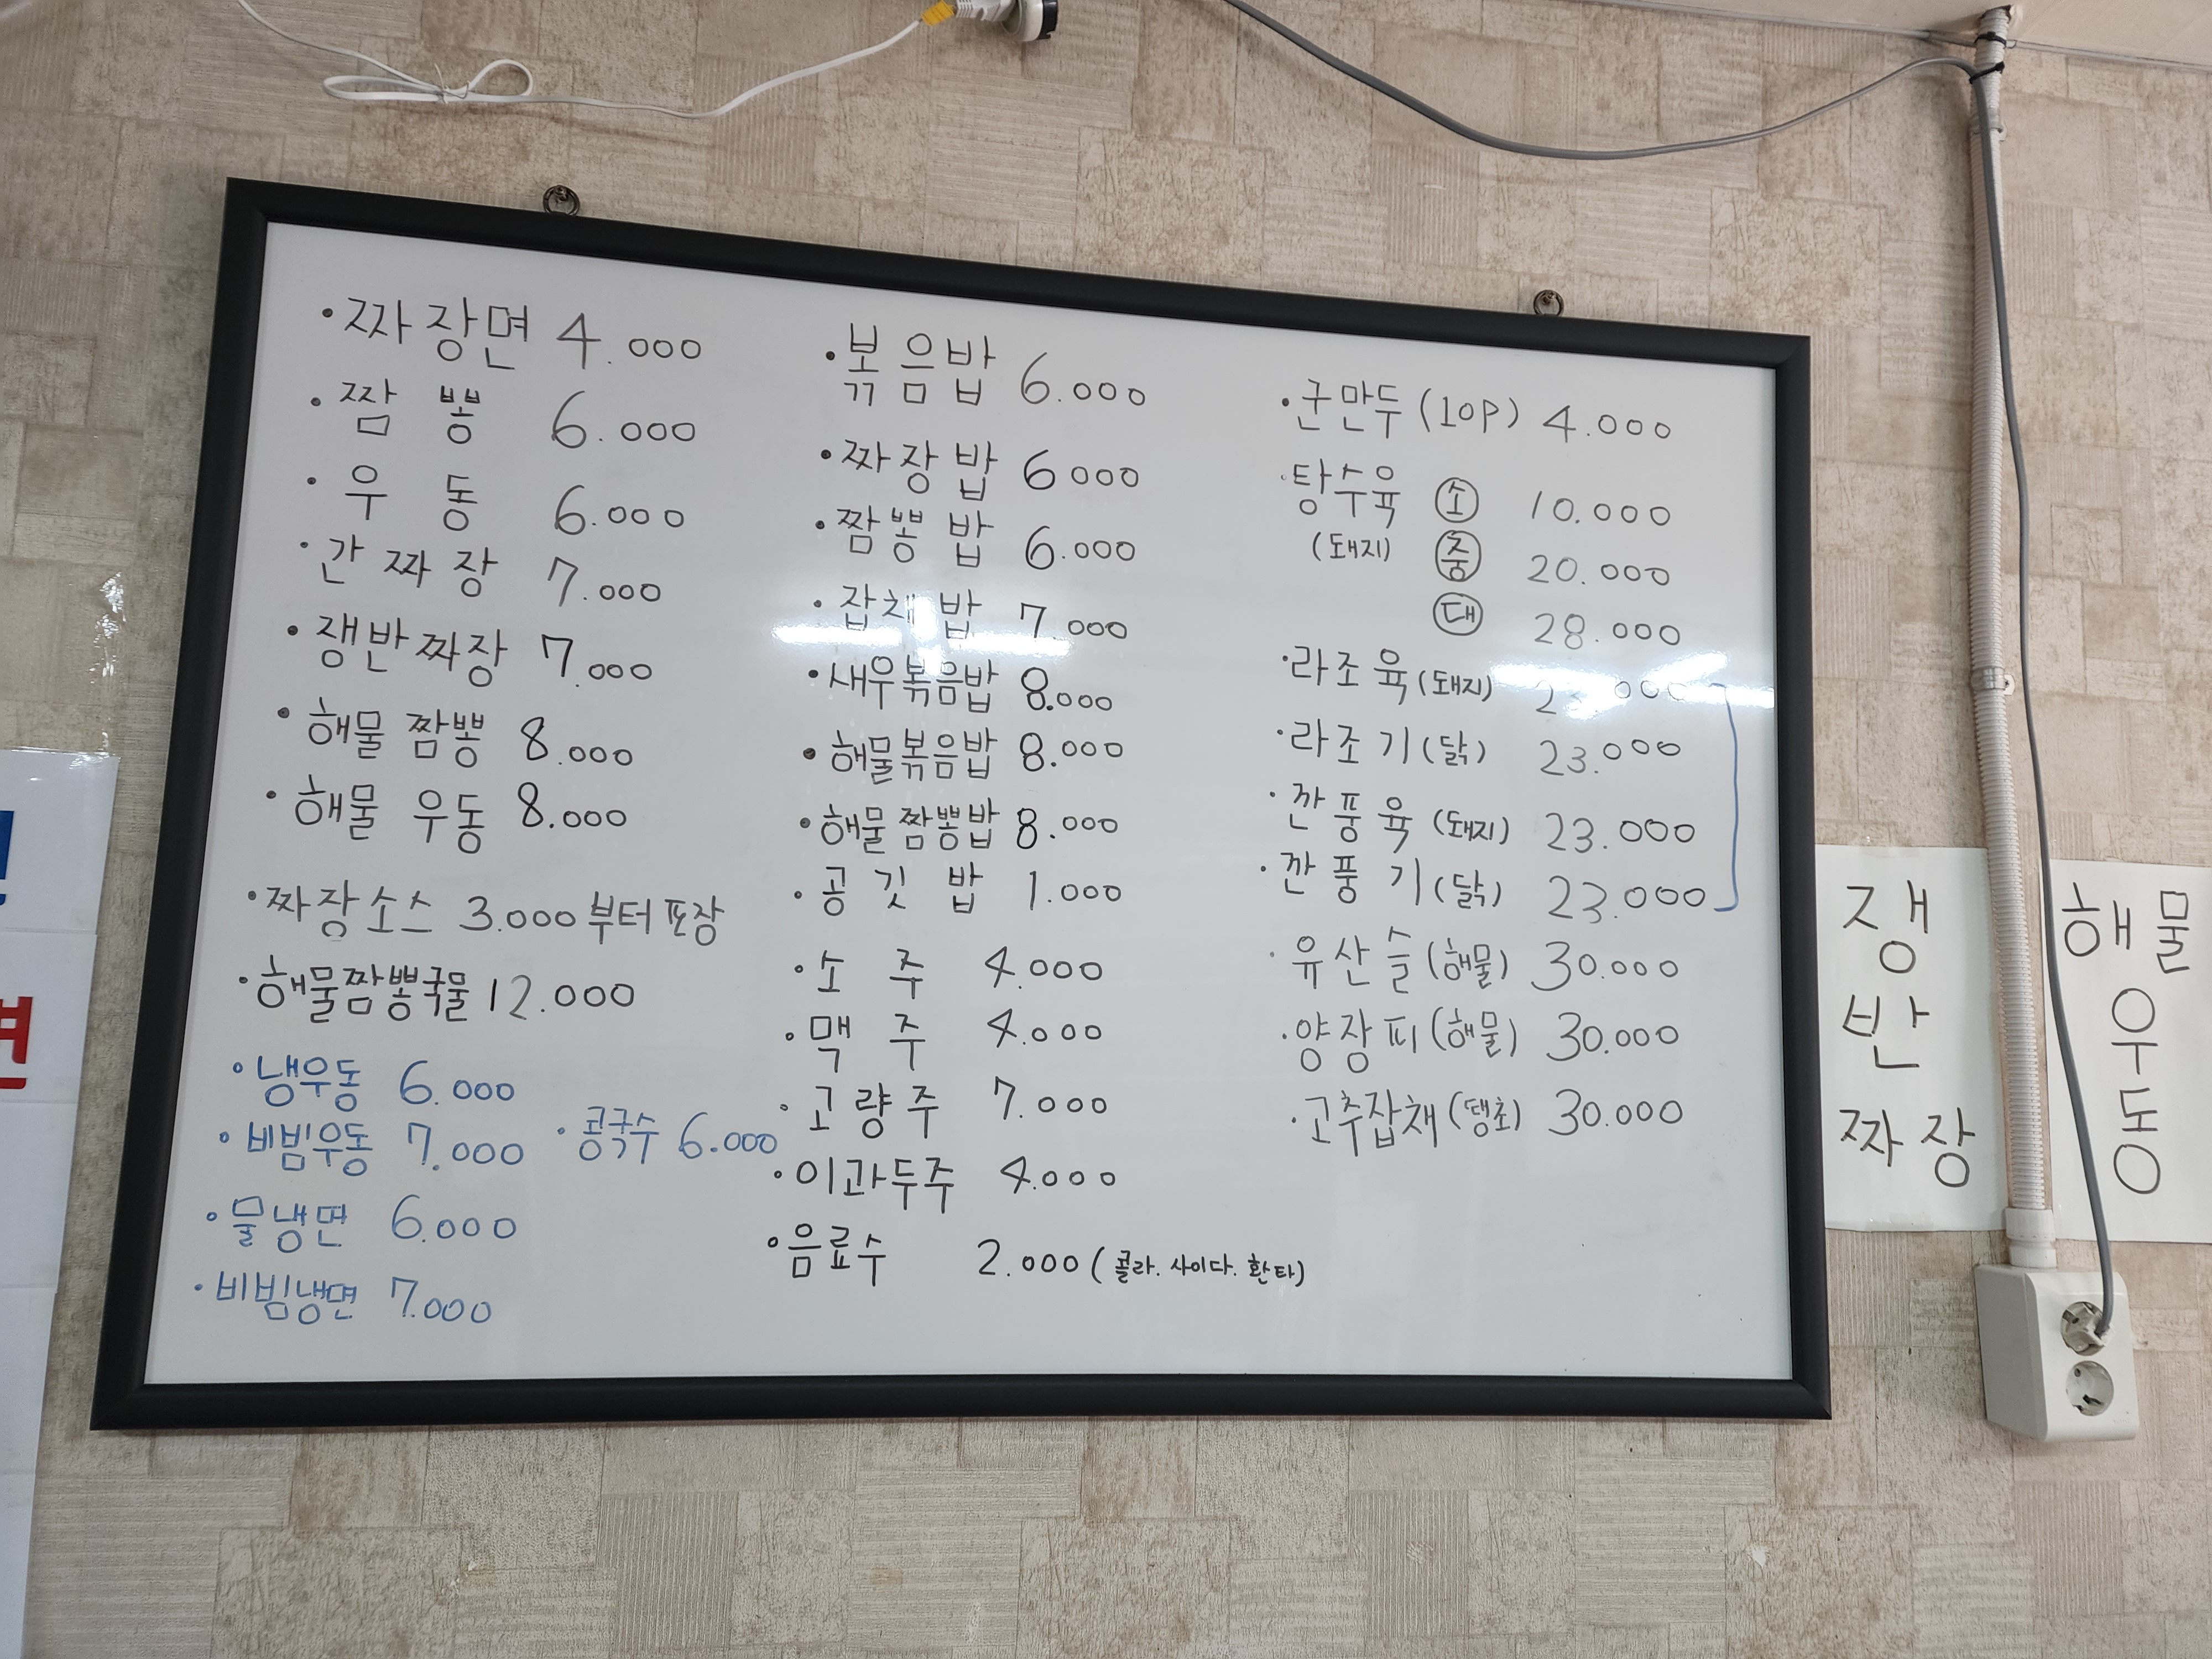 ·짜장면 4.000
·짬뽕 6.000
·우동 6.000
·간짜장 7.000
·쟁반짜장 7.000
·해물짬뽕 8.000
·해물 우동 8.000
·짜장소스 3.000부터 포장
·해물짬뽕국물 12.000
·냉우동 6.000
·비빔우동 7.000 ·콩국수 6.000
·물냉면 6.000
·비빔냉면 7.000
·볶음밥 6.000
·짜장밥 6.000
·짬뽕밥 6.000
·잡채밥 7.000
·새우볶음밥 8.000
·해물볶음밥 8.000
·해물짬뽕밥 8.000
·공깃밥 1.000
·소주 4.000
·맥주 4.000
·고량주 7.000
·이과두주 4.000
·음료수 2.000 (콜라. 사이다. 환타)
·군만두 (10P) 4.000
·탕수육 소 10.000
(돼지) 중 20.000
대 28.000
·라조육 (돼지)
·라조기 (닭) 23.000
·깐풍육 (돼지) 23.000
·깐풍기 (닭) 23.000
·유산슬 (해물) 30.000
·양장피 (해물) 30.000
·고추잡채 (땡초) 30.000
쟁
반
짜장
해물
우
동